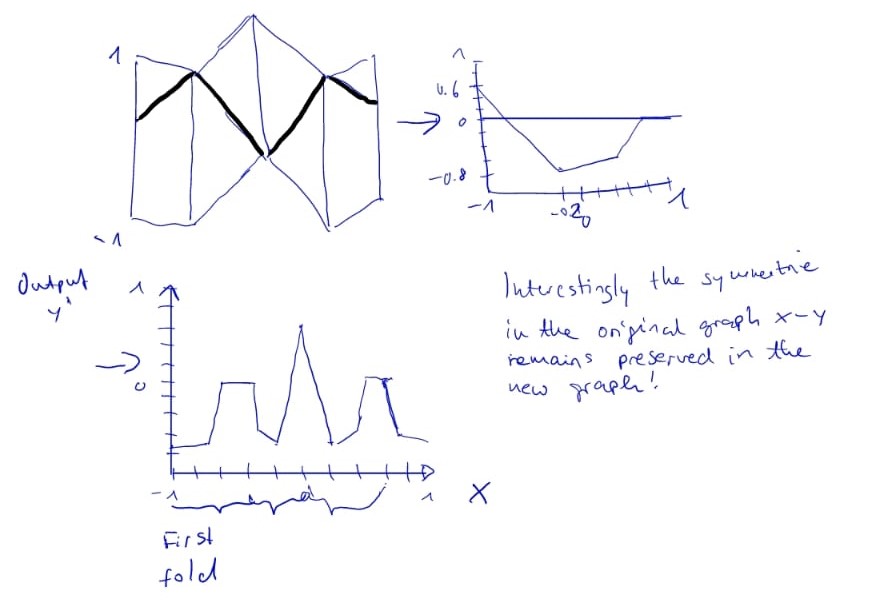 1
-1
1
0.6
0
-0.8
-1
0
1
Output
y'
1
0
-1
1
X
First
fold
Interestingly the symmetrie
in the original graph x-y
remains preserved in the
new graph!